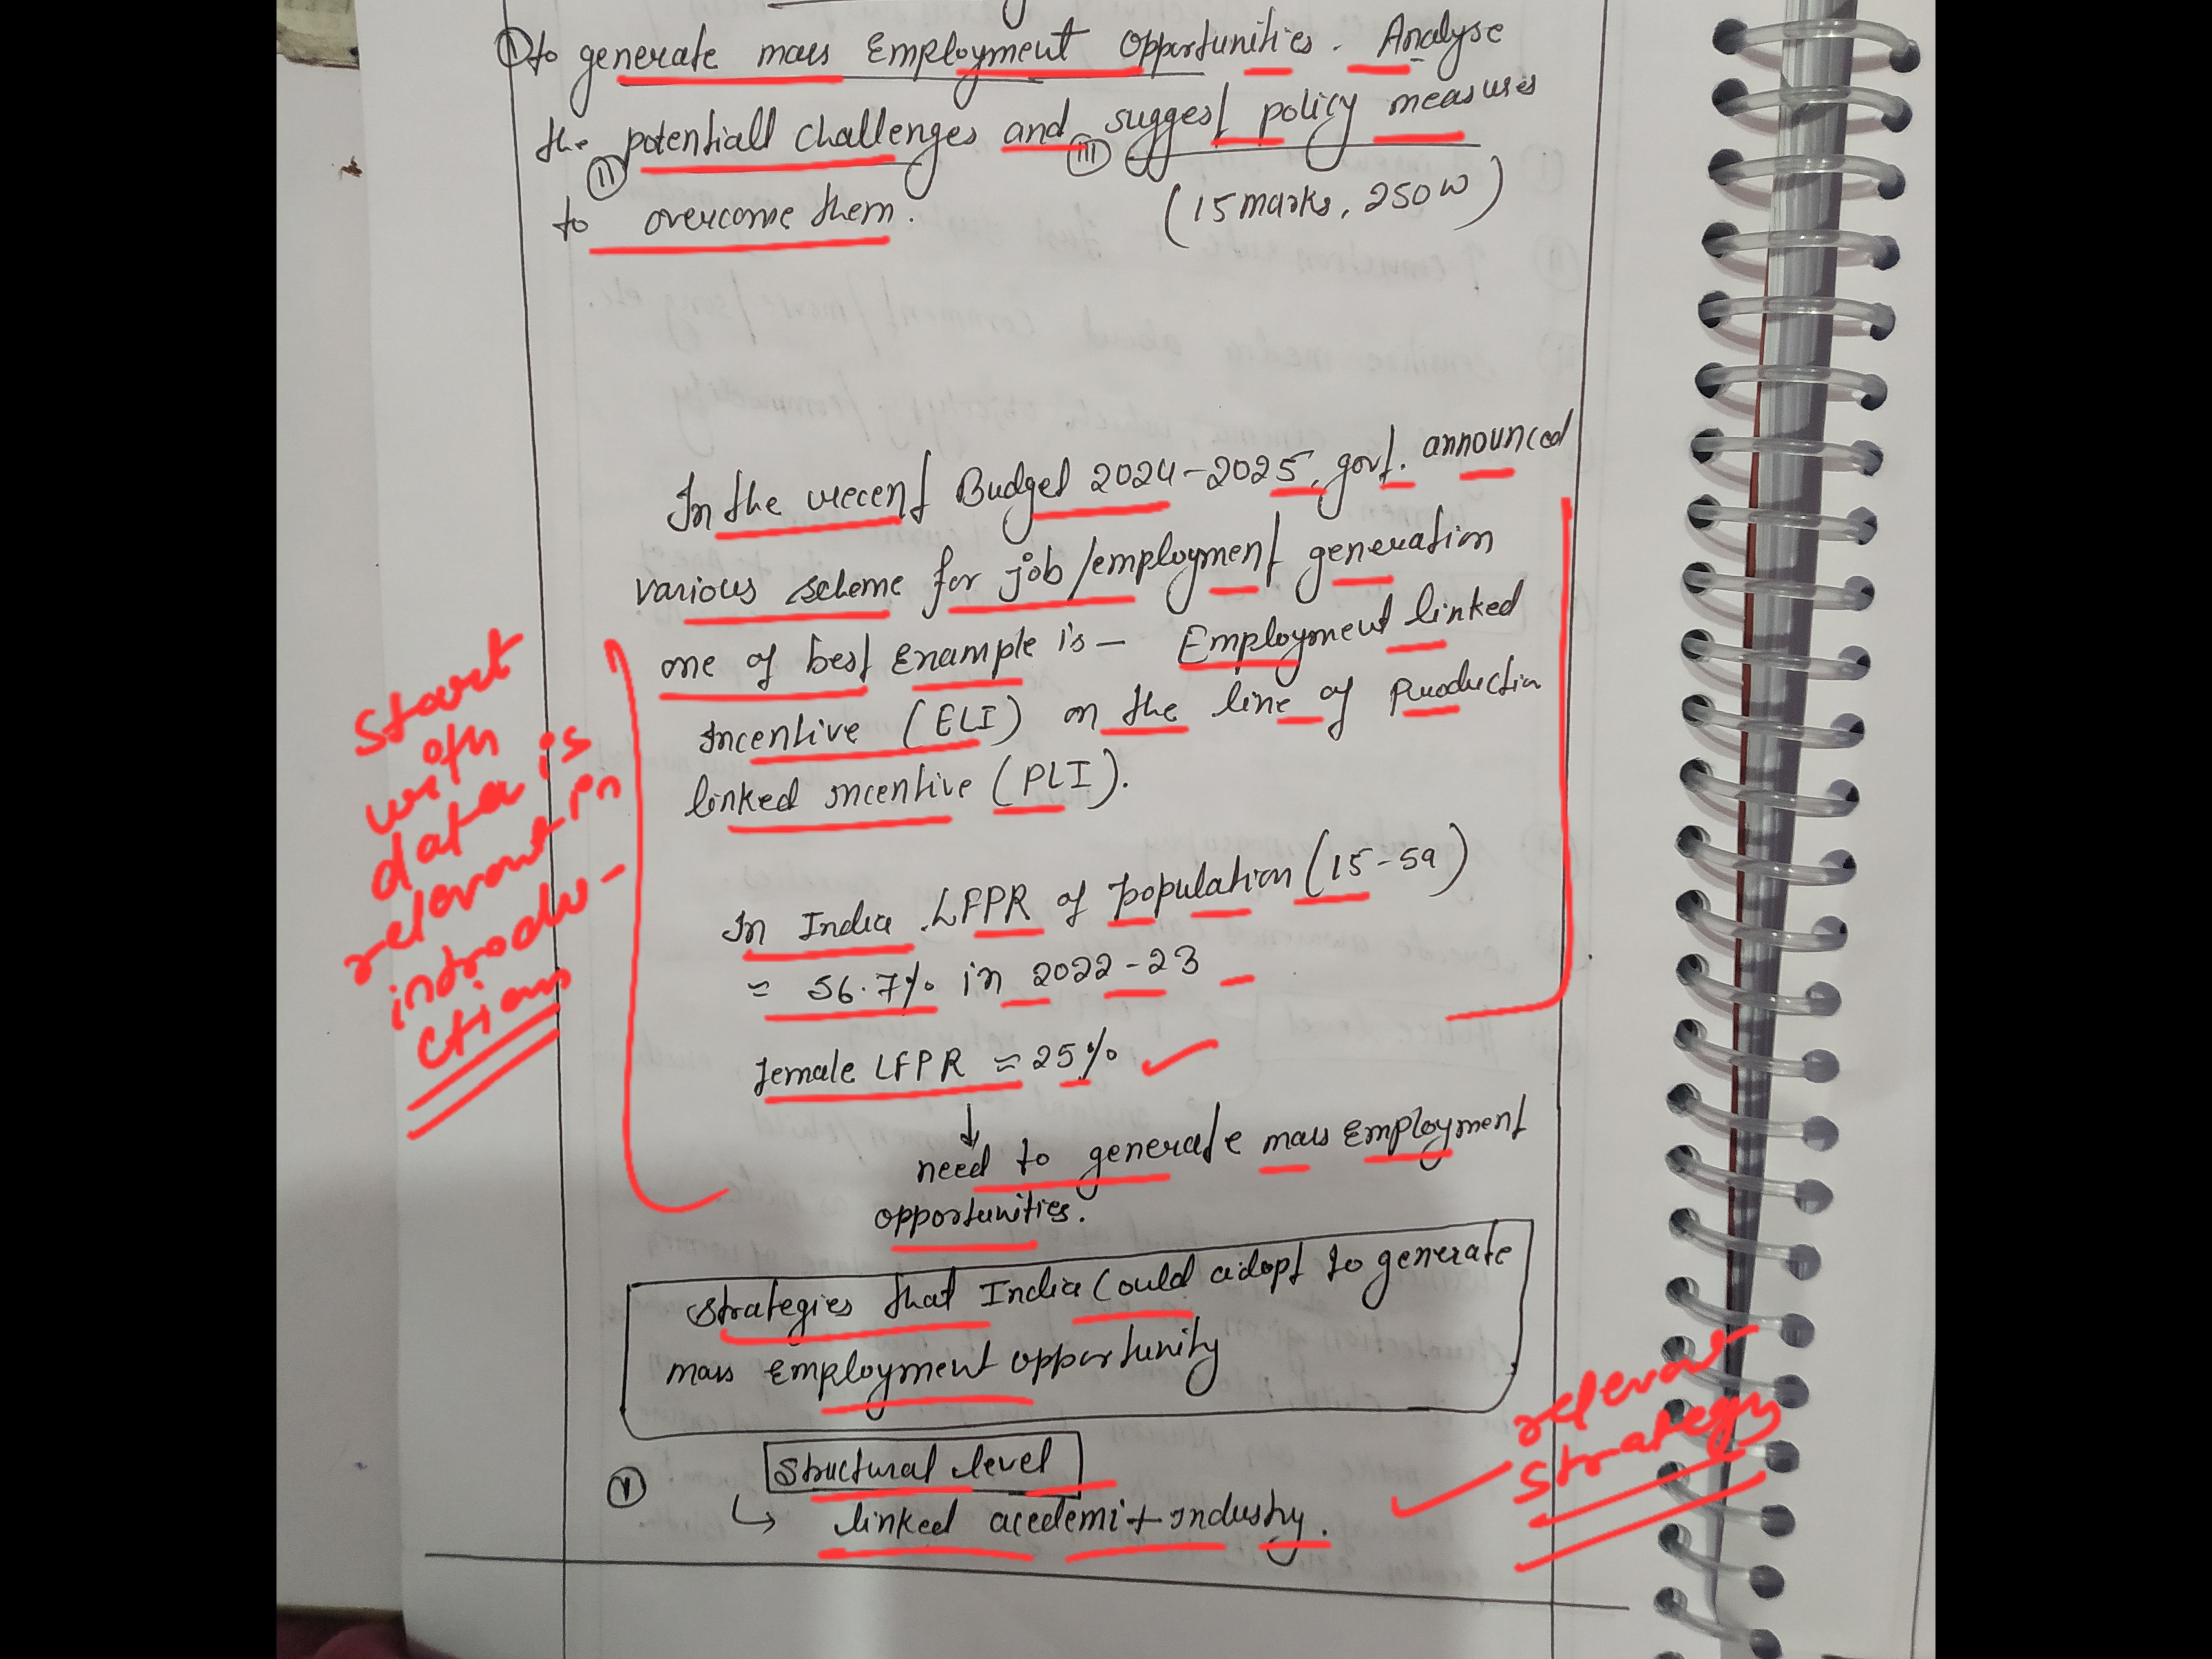 ① to generate mass Employment Opportunities. Analyse
the potentiall challenges and suggest policy measures
⑪ ⑪⑪
to overcome them. (15 marks, 250 W)
In the recent Budget 2024-2025, govt. announced
various scheme for job/employment generation
one of best Example is - Employment linked
Incentive (ELI) on the line of Production
linked incentive (PLI).
In India LFPR of population (15-59)
≈ 56.7% in 2022-23
female LFPR ≈ 25% ✓
↓
need to generate mass Employment
opportunities.
Start
with
data is
relevant in
introdu-
ctions
Strategies that India Could adopt to generate
mass Employment opportunity
Structural level
↳ linked acedemi + Industry. ✓
relevant
strategy